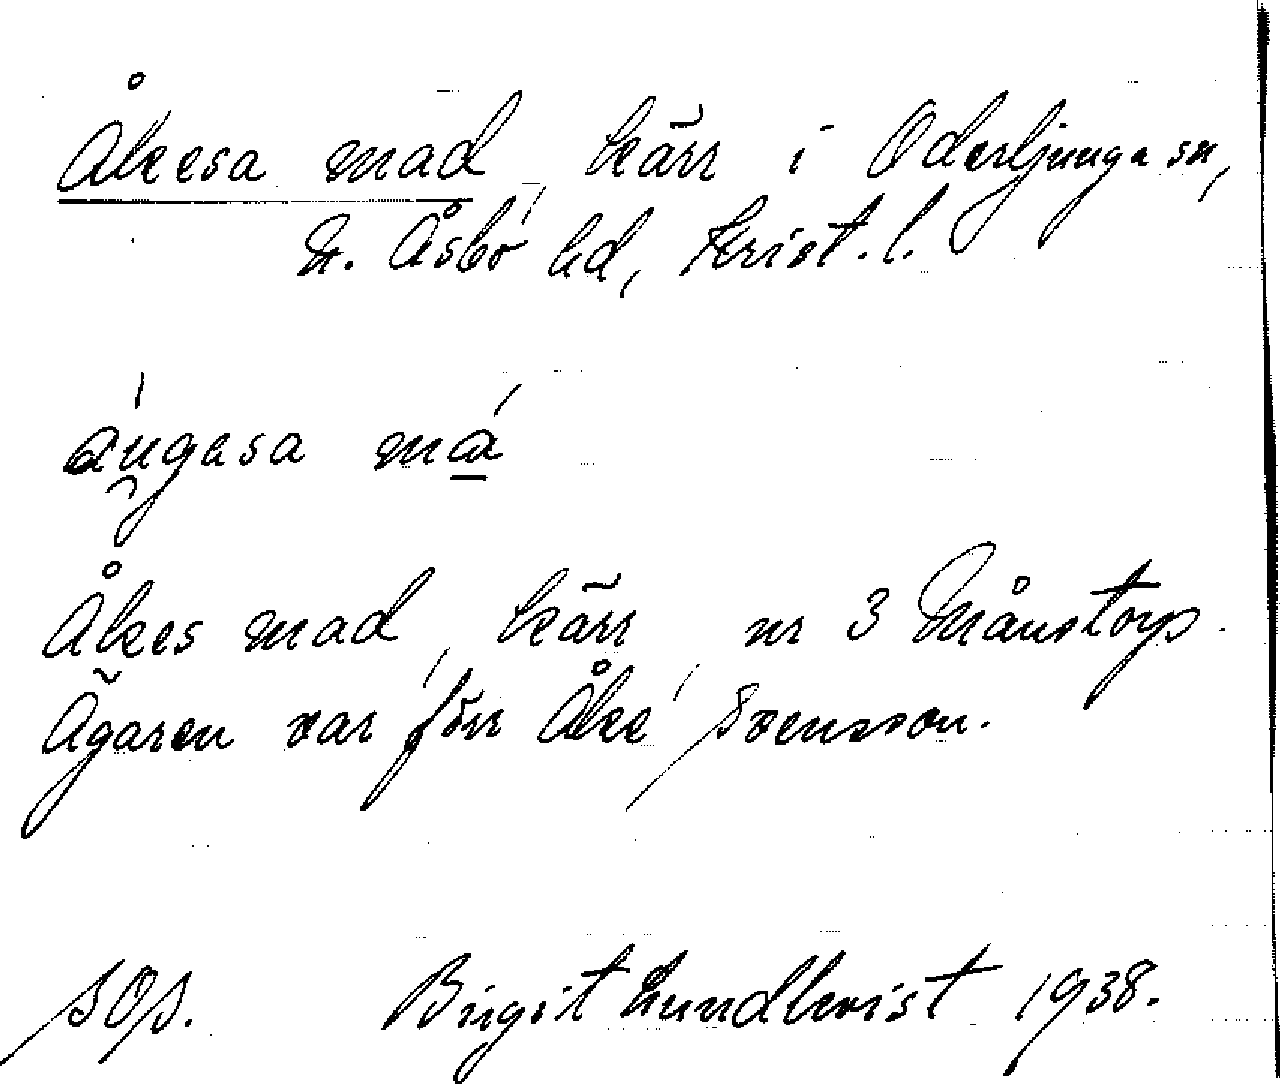 Åkesa mad, kärr i Oderljunga sn,
N. Åsbo hd, Krist. l.
Åkes mad, kärr, nr 3 Månstorp.
Ägaren var förr Åke Svensson.
SOS. Birgit Lundkvist 1938.